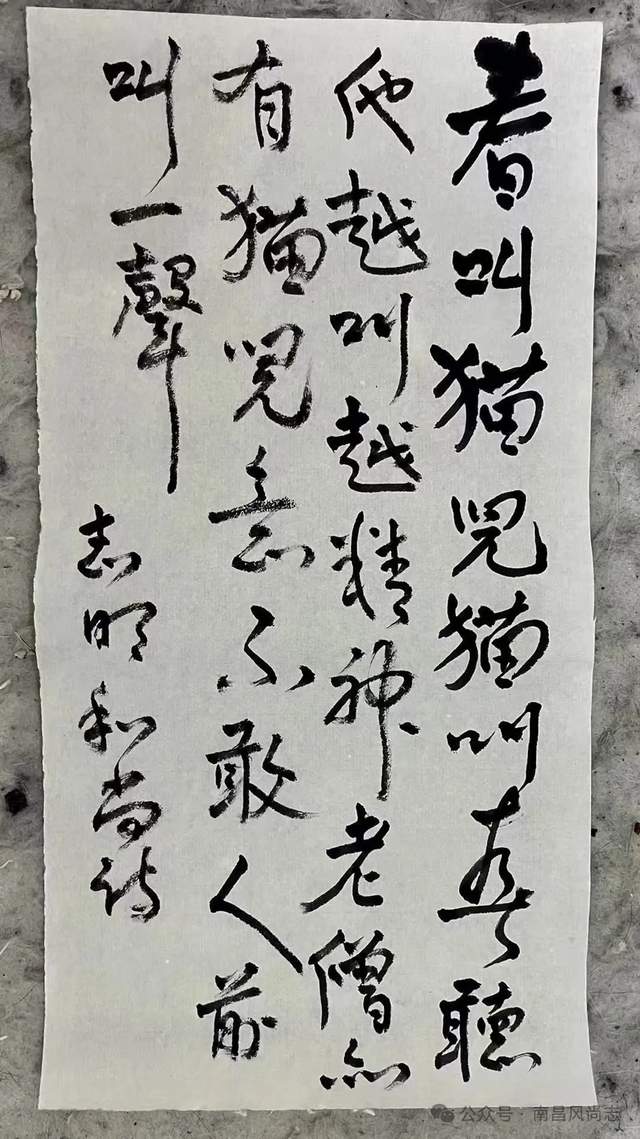 春叫猫兒猫叫春聽
他越叫越精神老僧亦
有猫兒意不敢人前
叫一聲
志明和尚詩
公众号 · 南昌风尚志